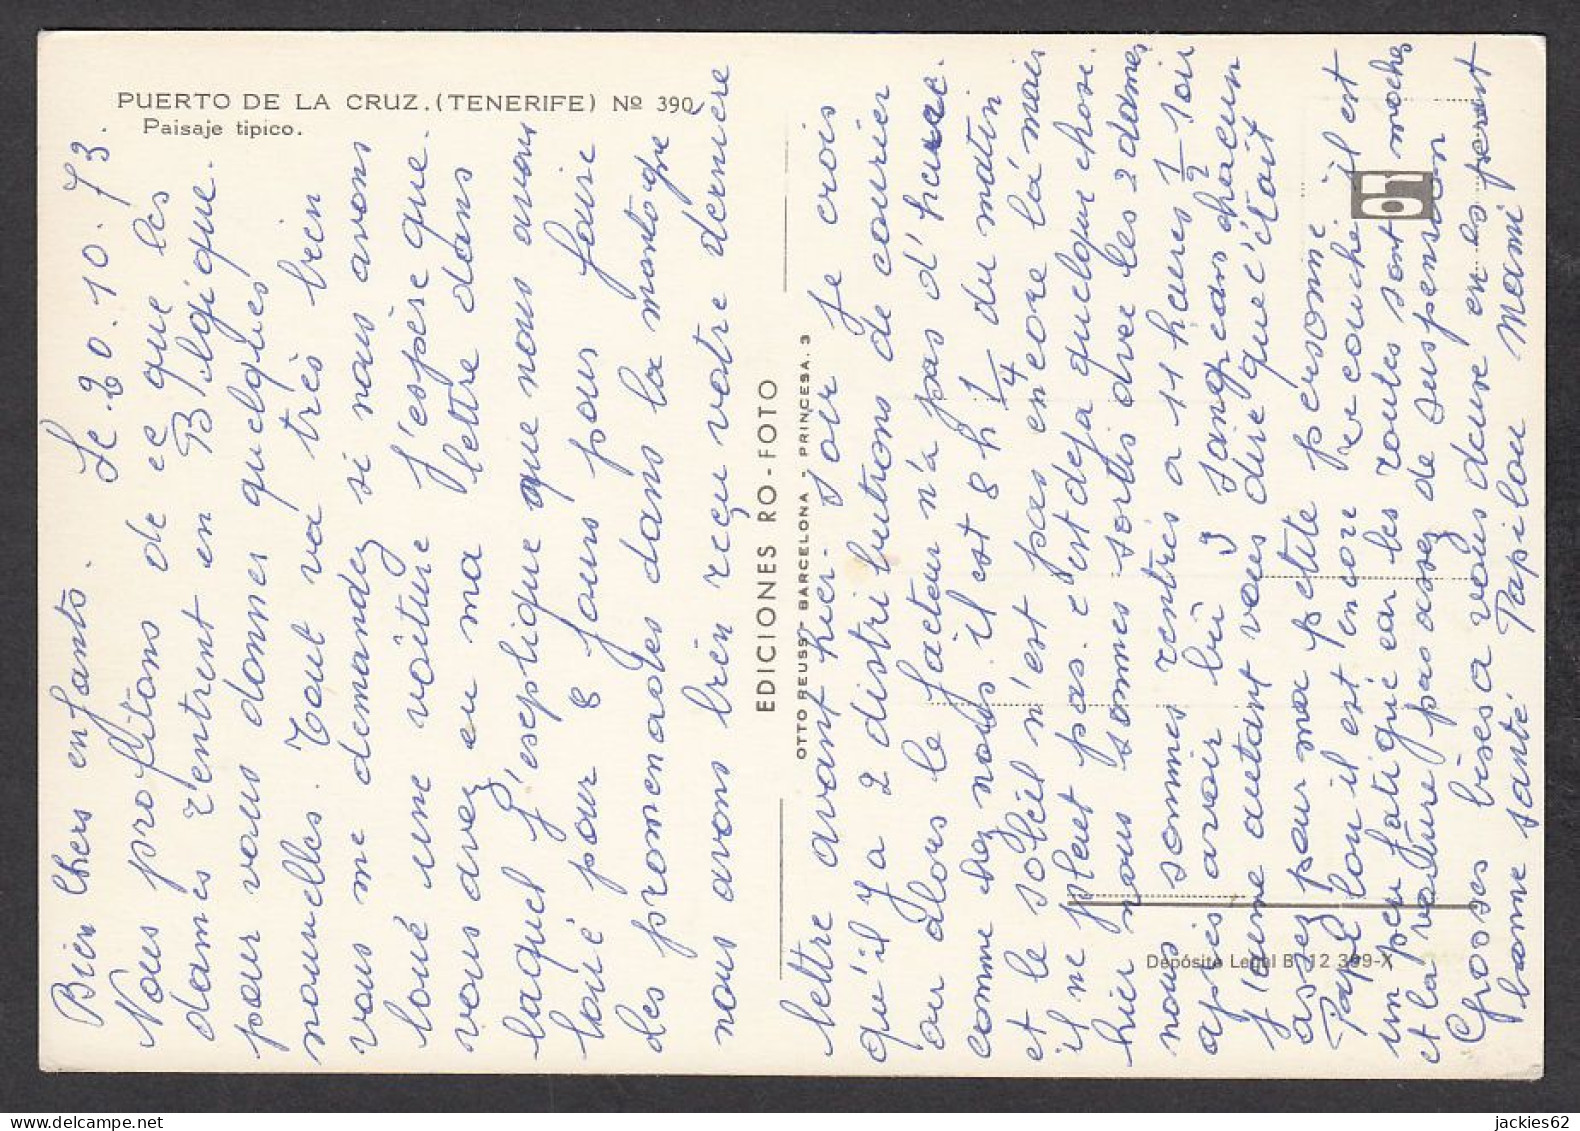 PUERTO DE LA CRUZ. (TENERIFE) Nº 390
Paisaje tipico.
Le 20.10.73.
Bien Chers enfants.
Nous profitons de ce que les
dames rentrent en Belgique.
pour vous donner quelques
nouvelles. Tout va très bien
vous me demandez si nous avons
loué une voiture j'espère que.
vous avez eu ma lettre dans
laquel j'esplique que nous avons
loué pour 8 jours pour faire
des promenades dans la montagne
nous avons bien reçu votre dernière
lettre avant hier-soir je crois
qu'il y a 2 distributions de courier
ou alors le facteur n'a pas d'heure.
comme chez nous. il est 8 h 1/4 du matin
et le soleil n'est pas encore là mais
il ne pleut pas. c'est deja quelque chose.
hier nous sommes sortis avec les 2 dames
nous sommes rentrés a 11 heures 1/2 soir
après avoir bu 3 sangrias chacun
j'aime autant vous dire que c'était
assez pour ma petite personne.
Papilou il est encore couché il est
un peu fatigué car les routes sont moches
et la voiture pas assez de suspension
Grosses bises a vous deux en les
bonne santé Papilou Mami
EDICIONES RO-FOTO
OTTO REUSS - BARCELONA - PRINCESA. 3
Depósito Legal B. 12 399-X
jackies62